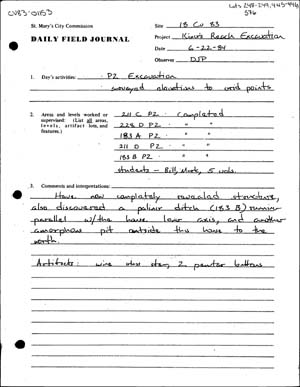 CV83-01153
Lots 248-249, 445-446
586
St. Mary's City Commission
DAILY FIELD JOURNAL
Site 18 Cv 83
Project King's Reach Excavation
Date 6-22-84
Observer DJP
1. Day's activities: · PZ Excavation
· surveyed elevations to grid points
2. Areas and levels worked or
supervised: (List all areas,
levels, artifact lots, and
features.)
211 C PZ · Completed
228 D PZ · " "
183 A PZ · " "
211 D PZ · " "
183 B PZ · " "
students - Bill, Mark, 5 vols.
3. Comments and interpretations:
Have now completely revealed structure,
also discovered a paling ditch (183 B) running
parallel w/the house long axis, and another
amorphous pit outside the house to the
north.
Artifacts: wine glass stem, 2 pewter buttons